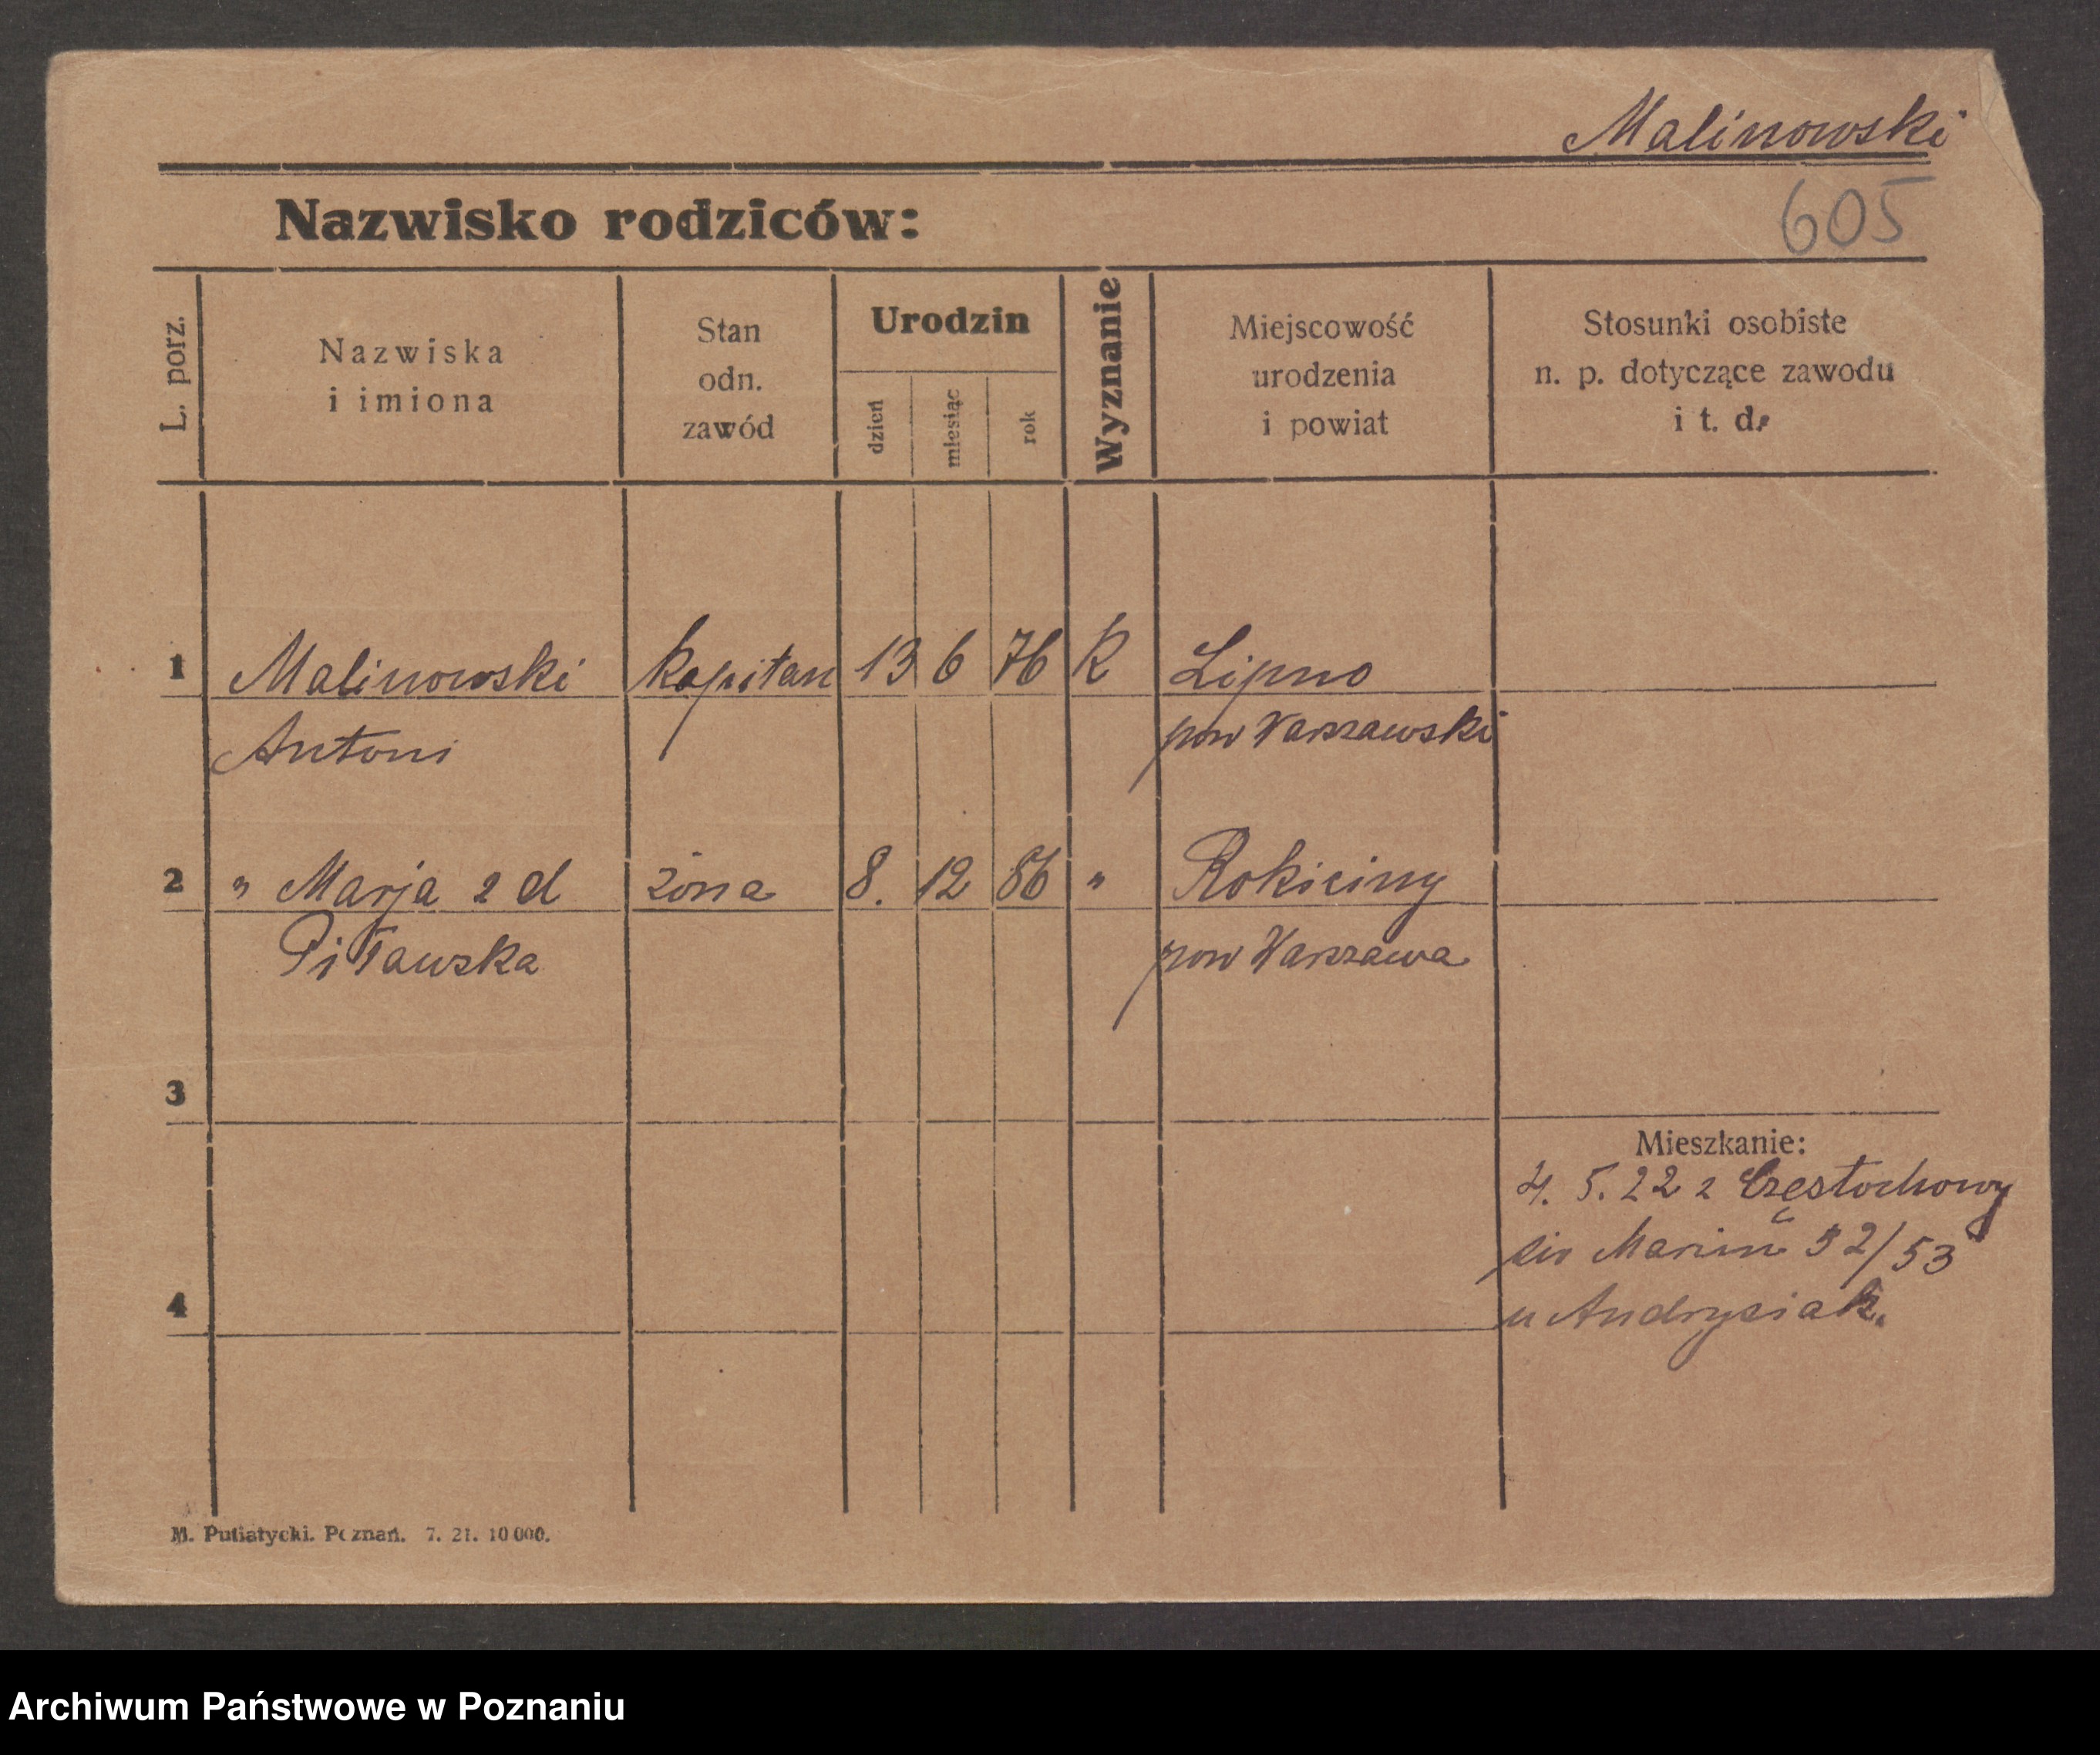 Malinowski
605
Nazwisko rodziców:
L. porz.
Nazwiska
i imiona
Stan
odn.
zawód
Urodzin
dzień
miesiąc
rok
Wyznanie
Miejscowość
urodzenia
i powiat
Stosunki osobiste
n. p. dotyczące zawodu
i t. d.
1 Malinowski kapitan 13 6 76 K Lipno
Antoni pow Warszawski
2 " Marja z d żona 8. 12 86 " Rokiciny
Piławska pow Warszawa
3
Mieszkanie:
4. 5. 22 z Częstochowy
32/53
4
u Andrysiak.
M. Putiatycki. Poznań. 7. 21. 10 000.
Archiwum Państwowe w Poznaniu